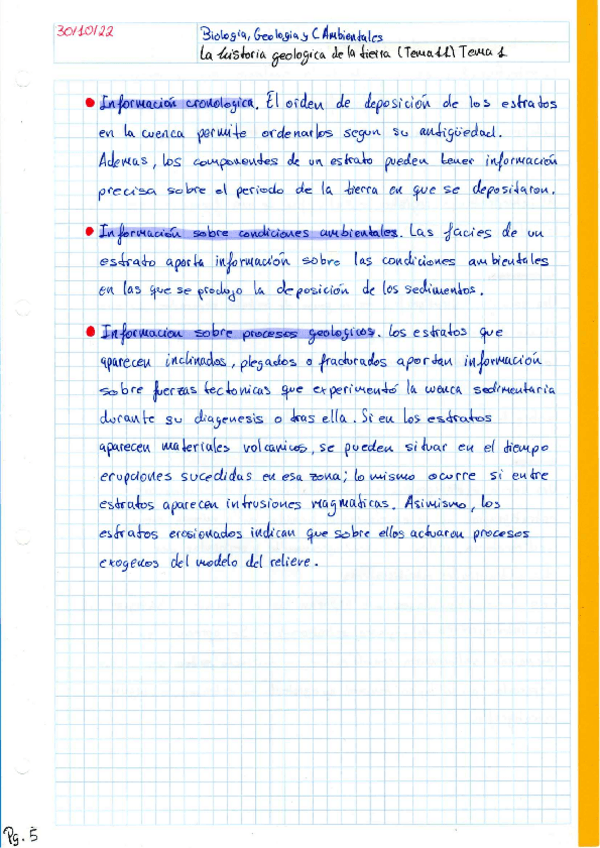 30/10/22
Biologia, Geologia y C Ambientales
La historia geologica de la tierra (Tema 11) Tema 1
Información cronologica. El orden de deposición de los estratos
en la cuenca permite ordenarlos segun su antigüedad.
Ademas, los componentes de un estrato pueden tener información
precisa sobre el periodo de la tierra en que se depositaron.
Información sobre condiciones ambientales. Las facies de un
estrato aporta información sobre las condiciones ambientales
en las que se produjo la deposición de los sedimentos.
Informacion sobre procesos geologicos. Los estratos que
aparecen inclinados, plegados o fracturados aportan información
sobre fuerzas tectonicas que experimentó la cuenca sedimentaria
durante su diagenesis o tras ella. Si en los estratos
aparecen materiales volcanicos, se pueden situar en el tiempo
erupciones sucedidas en esa zona; lo mismo ocurre si entre
estratos aparecen intrusiones magmaticas. Asimismo, los
estratos erosionados indican que sobre ellos actuaron procesos
exogenos del modelo del relieve.
Pg. 5